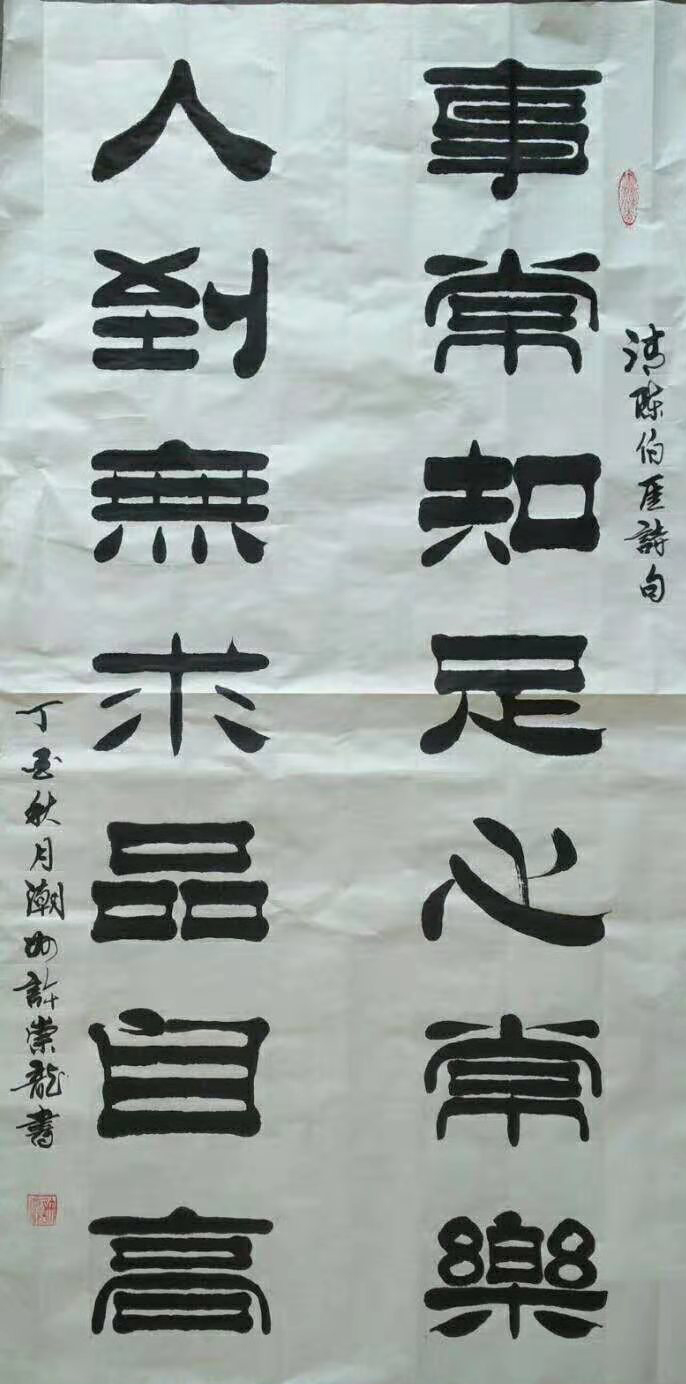 清陳伯厓詩句
事常知足心常樂
人到無求品自高
丁酉秋月潮州許崇龍書